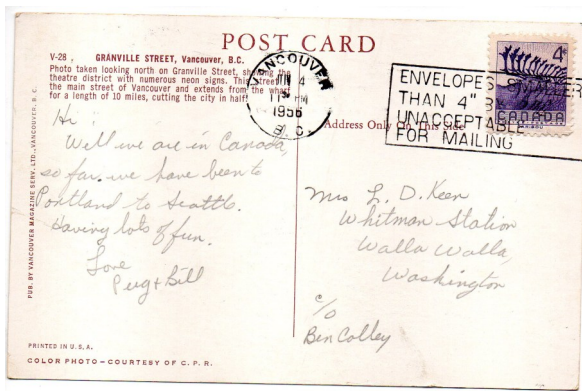 POST CARD
V-28, GRANVILLE STREET, Vancouver, B.C.
Photo taken looking north on Granville Street, showing the
theatre district with numerous neon signs. This street
the main street of Vancouver and extends from the wharf
for a length of 10 miles, cutting the city in half.
VANCOUVER
JUN 4
11 PM
1956
B.C.
ENVELOPES SMALLER
THAN 4" B
UNACCEPTABLE
FOR MAILING
4¢
CANADA
Address Only On This Side
Hi
Well we are in Canada,
so far we have been to
Portland to Seattle.
Having lots of fun.
Love
Pug + Bill
Mrs L. D. Keen
Whitman Station
Walla Walla,
Washington
c/o
Ben Colley
PUB. BY VANCOUVER MAGAZINE SERV. LTD., VANCOUVER, B.C.
PRINTED IN U.S.A.
COLOR PHOTO—COURTESY OF C.P.R.